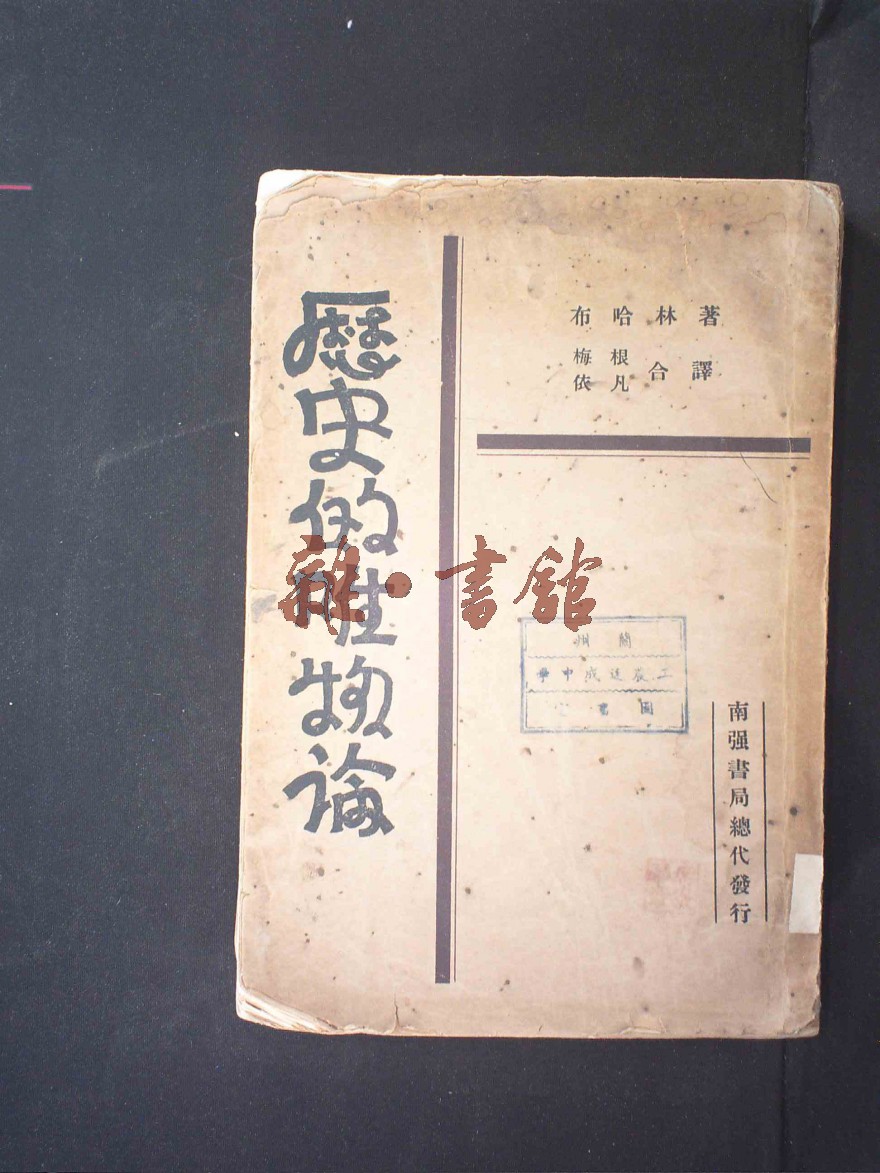 歷史的唯物論
布哈林著
梅根
依凡
合譯
雜·書館
工農速成中學
圖書
南强書局總代發行